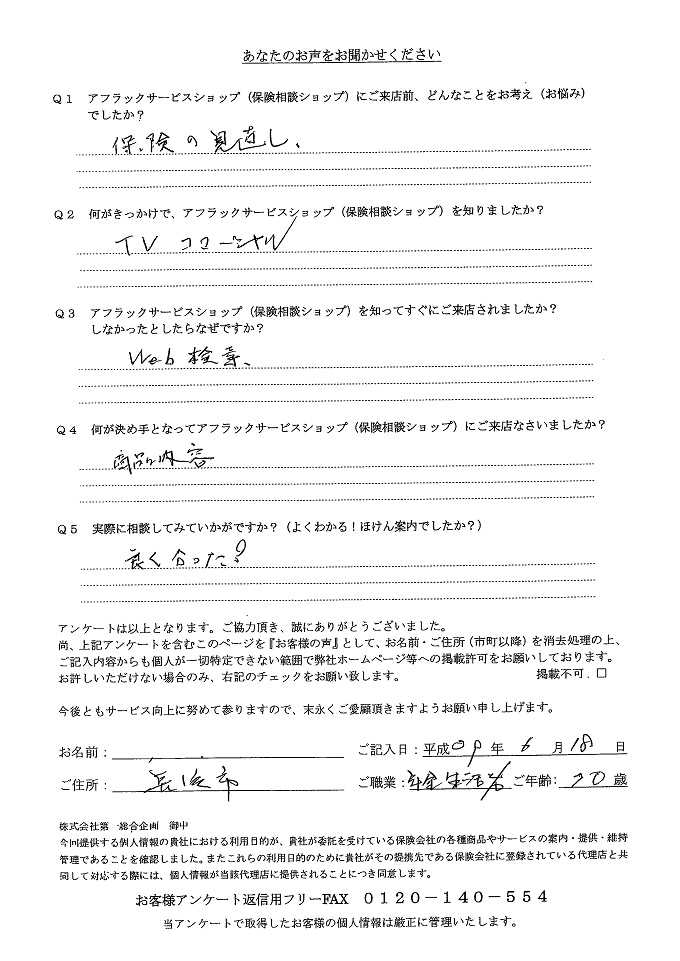 あなたのお声をお聞かせください
Q1 アフラックサービスショップ（保険相談ショップ）にご来店前、どんなことをお考え（お悩み）
でしたか？
保険の見直し、
Q2 何がきっかけで、アフラックサービスショップ（保険相談ショップ）を知りましたか？
TV コマーシャル
Q3 アフラックサービスショップ（保険相談ショップ）を知ってすぐにご来店されましたか？
しなかったとしたらなぜですか？
Web 検索、
Q4 何が決め手となってアフラックサービスショップ（保険相談ショップ）にご来店なさいましたか？
商品内容
Q5 実際に相談してみていかがですか？（よくわかる！ほけん案内でしたか？）
良く合った？
アンケートは以上となります。ご協力頂き、誠にありがとうございました。
尚、上記アンケートを含むこのページを『お客様の声』として、お名前・ご住所（市町以降）を消去処理の上、
ご記入内容からも個人が一切特定できない範囲で弊社ホームページ等への掲載許可をお願いしております。
お許しいただけない場合のみ、右記のチェックをお願い致します。 掲載不可．□
今後ともサービス向上に努めて参りますので、末永くご愛顧頂きますようお願い申し上げます。
お名前： ご記入日：平成29年 6月18日
ご住所： ご職業：年金生活者 ご年齢：70歳
株式会社第一総合企画 御中
今回提供する個人情報の貴社における利用目的が、貴社が委託を受けている保険会社の各種商品やサービスの案内・提供・維持
管理であることを確認しました。またこれらの利用目的のために貴社がその提携先である保険会社に登録されている代理店と共
同して対応する際には、個人情報が当該代理店に提供されることにつき同意します。
お客様アンケート返信用フリーFAX 0120－140－554
当アンケートで取得したお客様の個人情報は厳正に管理いたします。